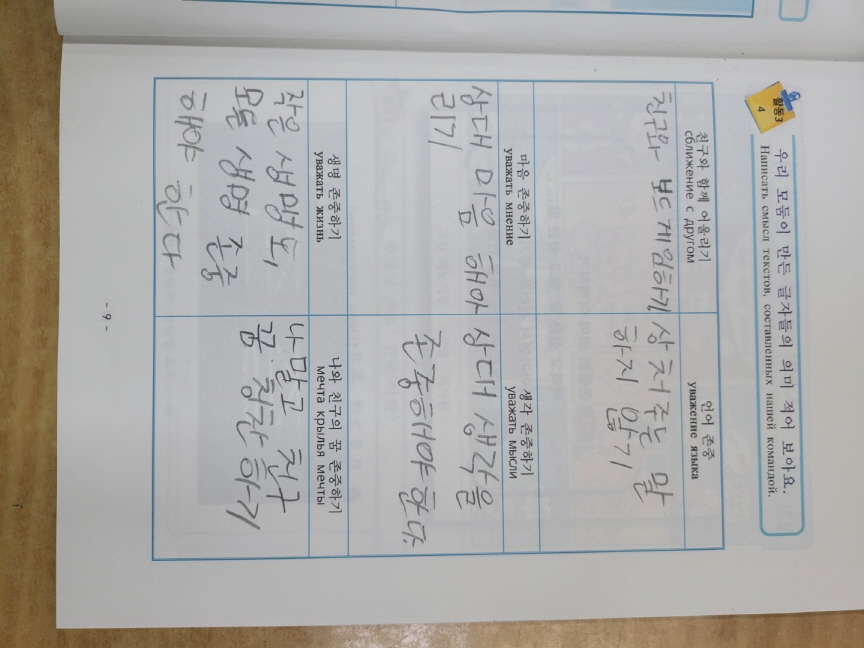 활동3
4
우리 모둠이 만든 글자들의 의미 적어 보아요.
Написать смысл текстов, составленных нашей командой.
친구와 함께 어울리기
сближение с другом
언어 존중
уважение языка
친구와 보드게임하기
상처주는 말
하지 않기
마음 존중하기
уважать мнение
생각 존중하기
уважать мысли
상대 마음 해아
리기
상대 생각을
존중해야한다.
생명 존중하기
уважать жизнь
나와 친구의 꿈 존중하기
мечта крылья мечты
작은 생명도,
모든 생명 존중
해야 한다
나말고 친구
꿈 칭찬하기
- 9 -